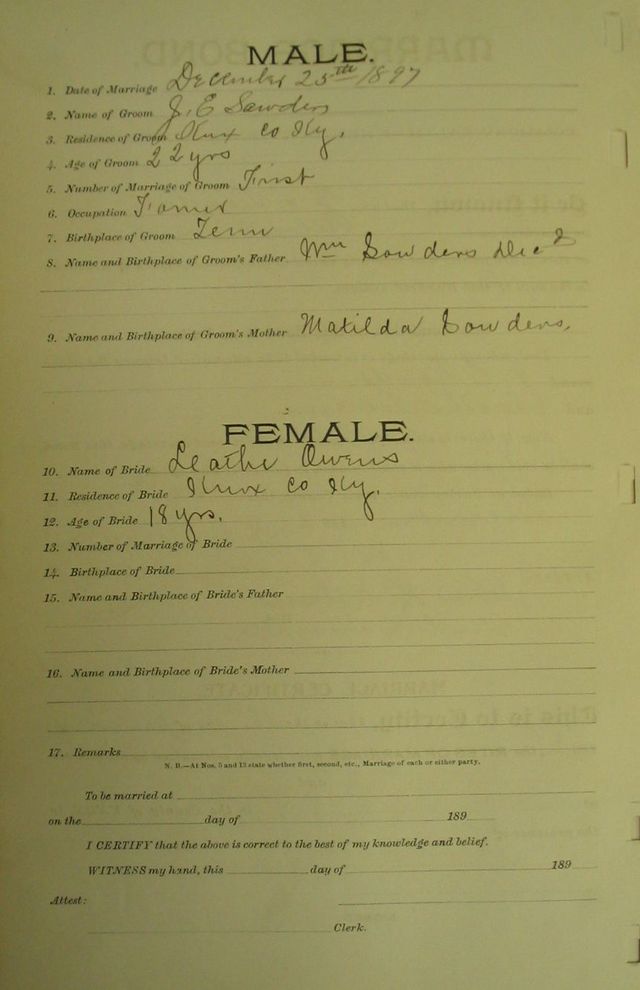 MALE.
1. Date of Marriage December 25th 1897
2. Name of Groom J. E Sowders
3. Residence of Groom Knox Co Ky.
4. Age of Groom 22 yrs
5. Number of Marriage of Groom First
6. Occupation Farmer
7. Birthplace of Groom Tenn
8. Name and Birthplace of Groom's Father Wm Sowders Decd
9. Name and Birthplace of Groom's Mother Matilda Sowders.
FEMALE.
10. Name of Bride Leatha Owens
11. Residence of Bride Knox Co Ky.
12. Age of Bride 18 yrs.
13. Number of Marriage of Bride
14. Birthplace of Bride
15. Name and Birthplace of Bride's Father
16. Name and Birthplace of Bride's Mother
17. Remarks
N. B.—At Nos. 5 and 13 state whether first, second, etc., Marriage of each or either party.
To be married at
on the day of 189
I CERTIFY that the above is correct to the best of my knowledge and belief.
WITNESS my hand, this day of 189
Attest:
Clerk.